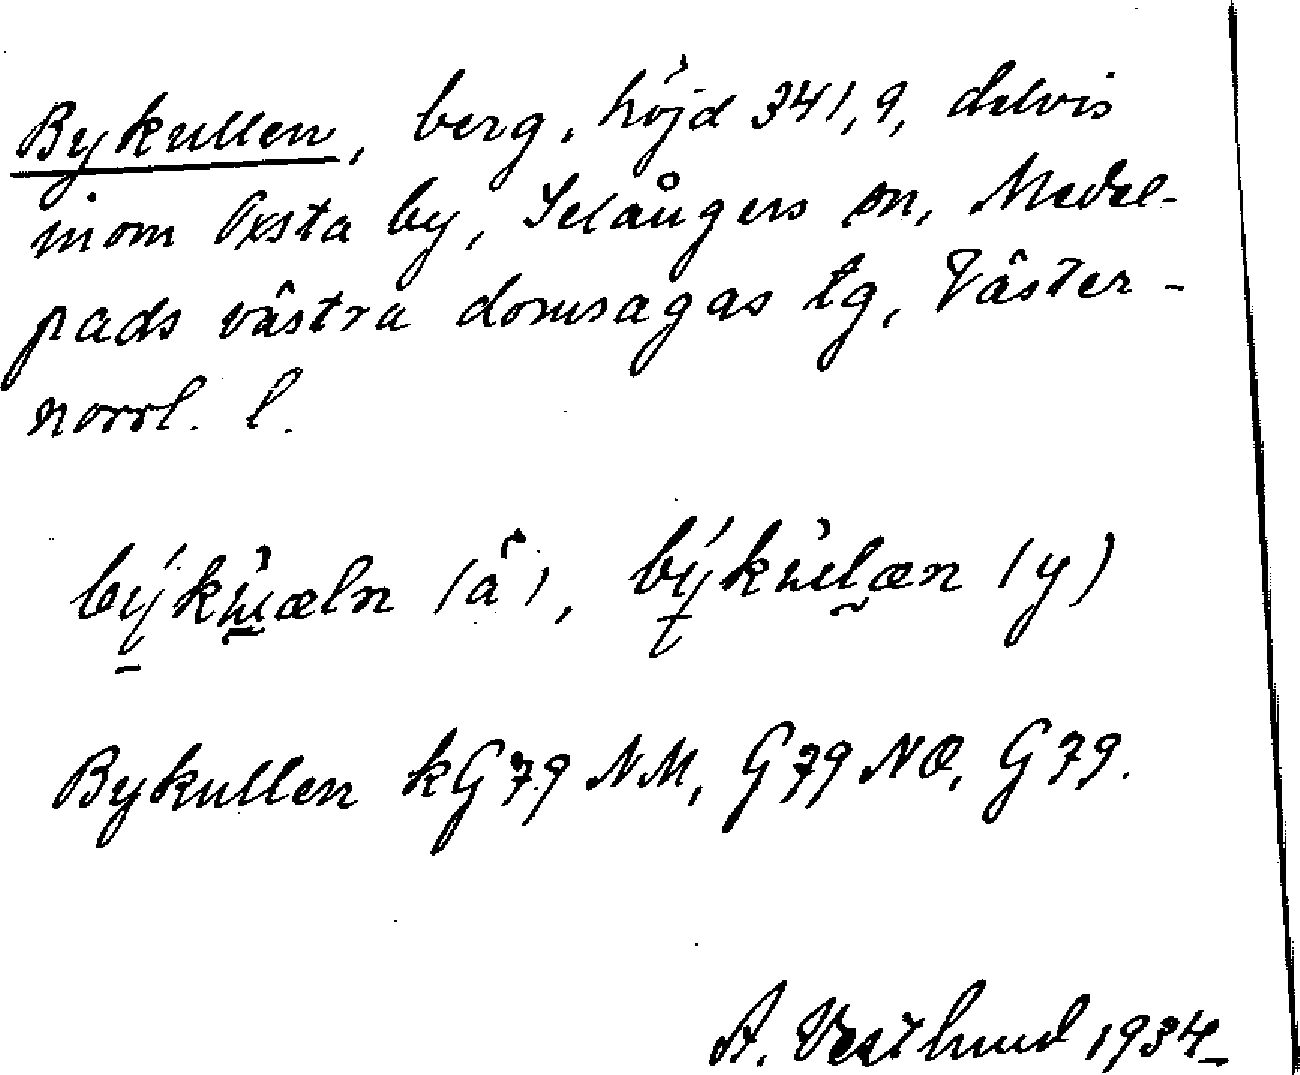 Bykullen, berg, höjd 341,9, delvis
inom Oxsta by, Selångers sn, Medel-
pads västra domsagas tg, Väster-
norrl. l.
(ä), (y)
Bykullen kG79 NM, G79 NO, G79.
A. Vestlund 1934